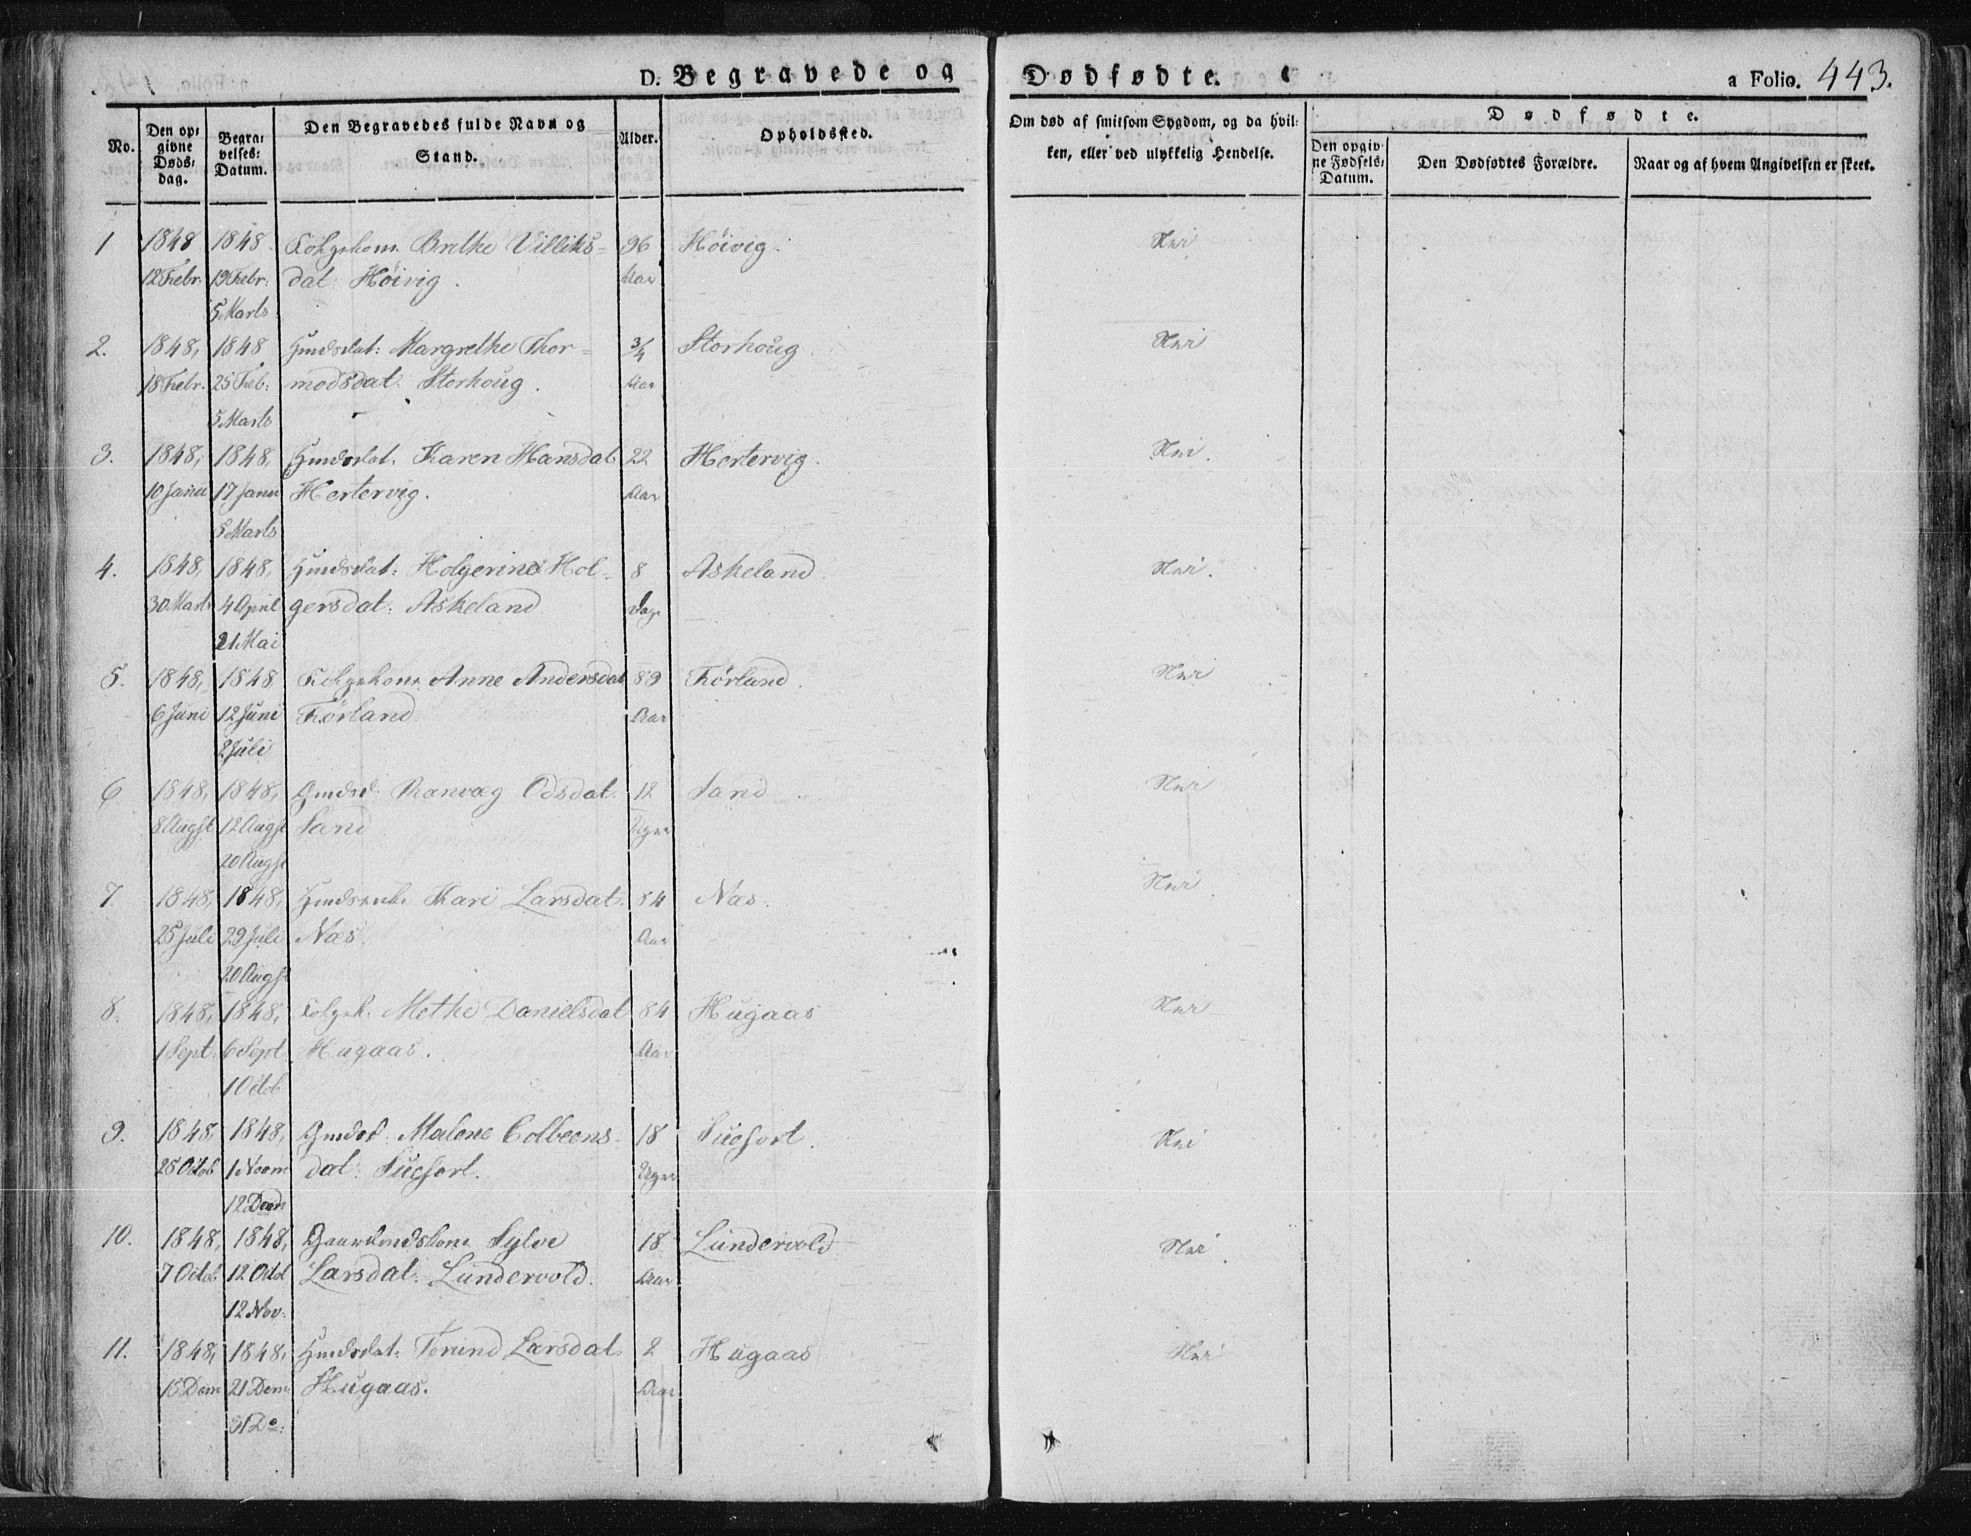 D. Begravede og Dødfødte. a Folio. 443.
No. Den opgivne Døds-dag. Begravelses-Datum. Den Begravedes fulde Navn og Stand. Alder. Opholdssted. Om død af smitsom Sygdom, og da hvilken, eller ved ulykkelig Hendelse. Dødfødte.
Den opgivne Fødsels-Datum. Den Dødfødtes Forældre. Naar og af hvem Angivelsen er skeet.
1 1848 1848 Brethe Villiks= 96 Høivig. Nei
12 Febr. 19 Febr. dat: Høivig. Aar
5 Marts
2. 1848, 1848 Margrethe Thor= 3/4 Storhoug. Nei
18 Febr. 25 Feb: modsdat: Storhoug. Aar
5 Marts
3. 1848, 1848, Karen Hansdat 22 Hertervig. Nei.
10 Janu 17 Janu Hertervig. Aar
5 Marts
4. 1848, 1848, Holgerine Hol- 8 Askeland. Nei.
30 Marts 4 April gersdat: Askeland Dage
21 Mai
5. 1848, 1848 Anne Andersdat 89 Førland. Nei
6 Juni 12 Juni Førland. Aar
2 Juli
6 1848, 1848, Ranvag Odsdat. 12 Sand. Nei
8 Augst 12 Augst Sand Uger
20 Augst
7. 1848, 1848, Kari Larsdat. 84 Næs. Nei
25 Juli 29 Juli Næs. Aar
20 Augst
8. 1848, 1848, Methe Danielsdat 84 Hugaas Nei
1 Sept. 6 Sept Hugaas. Aar
1 Octob
9. 1848, 1848, Malene Colbeens- 18 Nei
25 Octob dat: Uger
10. 1848, 1848, Sylve 18 Lundervold Nei
7 Octob 12 Octob Larsdat: Lundervold. Aar
12 Nov:
11. 1848, 1848, Larsdat. 2 Hugaas Nei
21 Hugaas. Aar
31 Do: